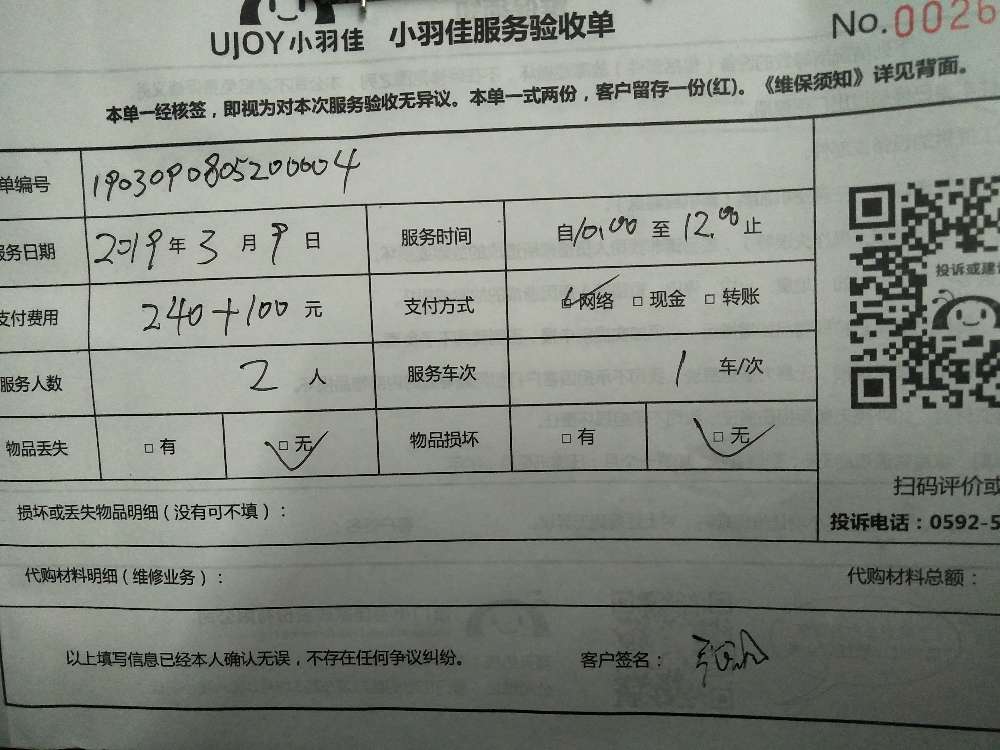 UJOY小羽佳 小羽佳服务验收单 No.0026
本单一经核签，即视为对本次服务验收无异议。本单一式两份，客户留存一份(红)。《维保须知》详见背面。
单编号 190309080520004
服务日期 2019年3月9日 服务时间 自10:00至12:00止
支付费用 240+100元 支付方式 □网络 □现金 □转账
服务人数 2人 服务车次 1车/次
物品丢失 □有 □无 物品损坏 □有 □无
投诉或建
扫码评价或
投诉电话：0592-5
损坏或丢失物品明细（没有可不填）：
代购材料明细（维修业务）： 代购材料总额：
以上填写信息已经本人确认无误，不存在任何争议纠纷。 客户签名：